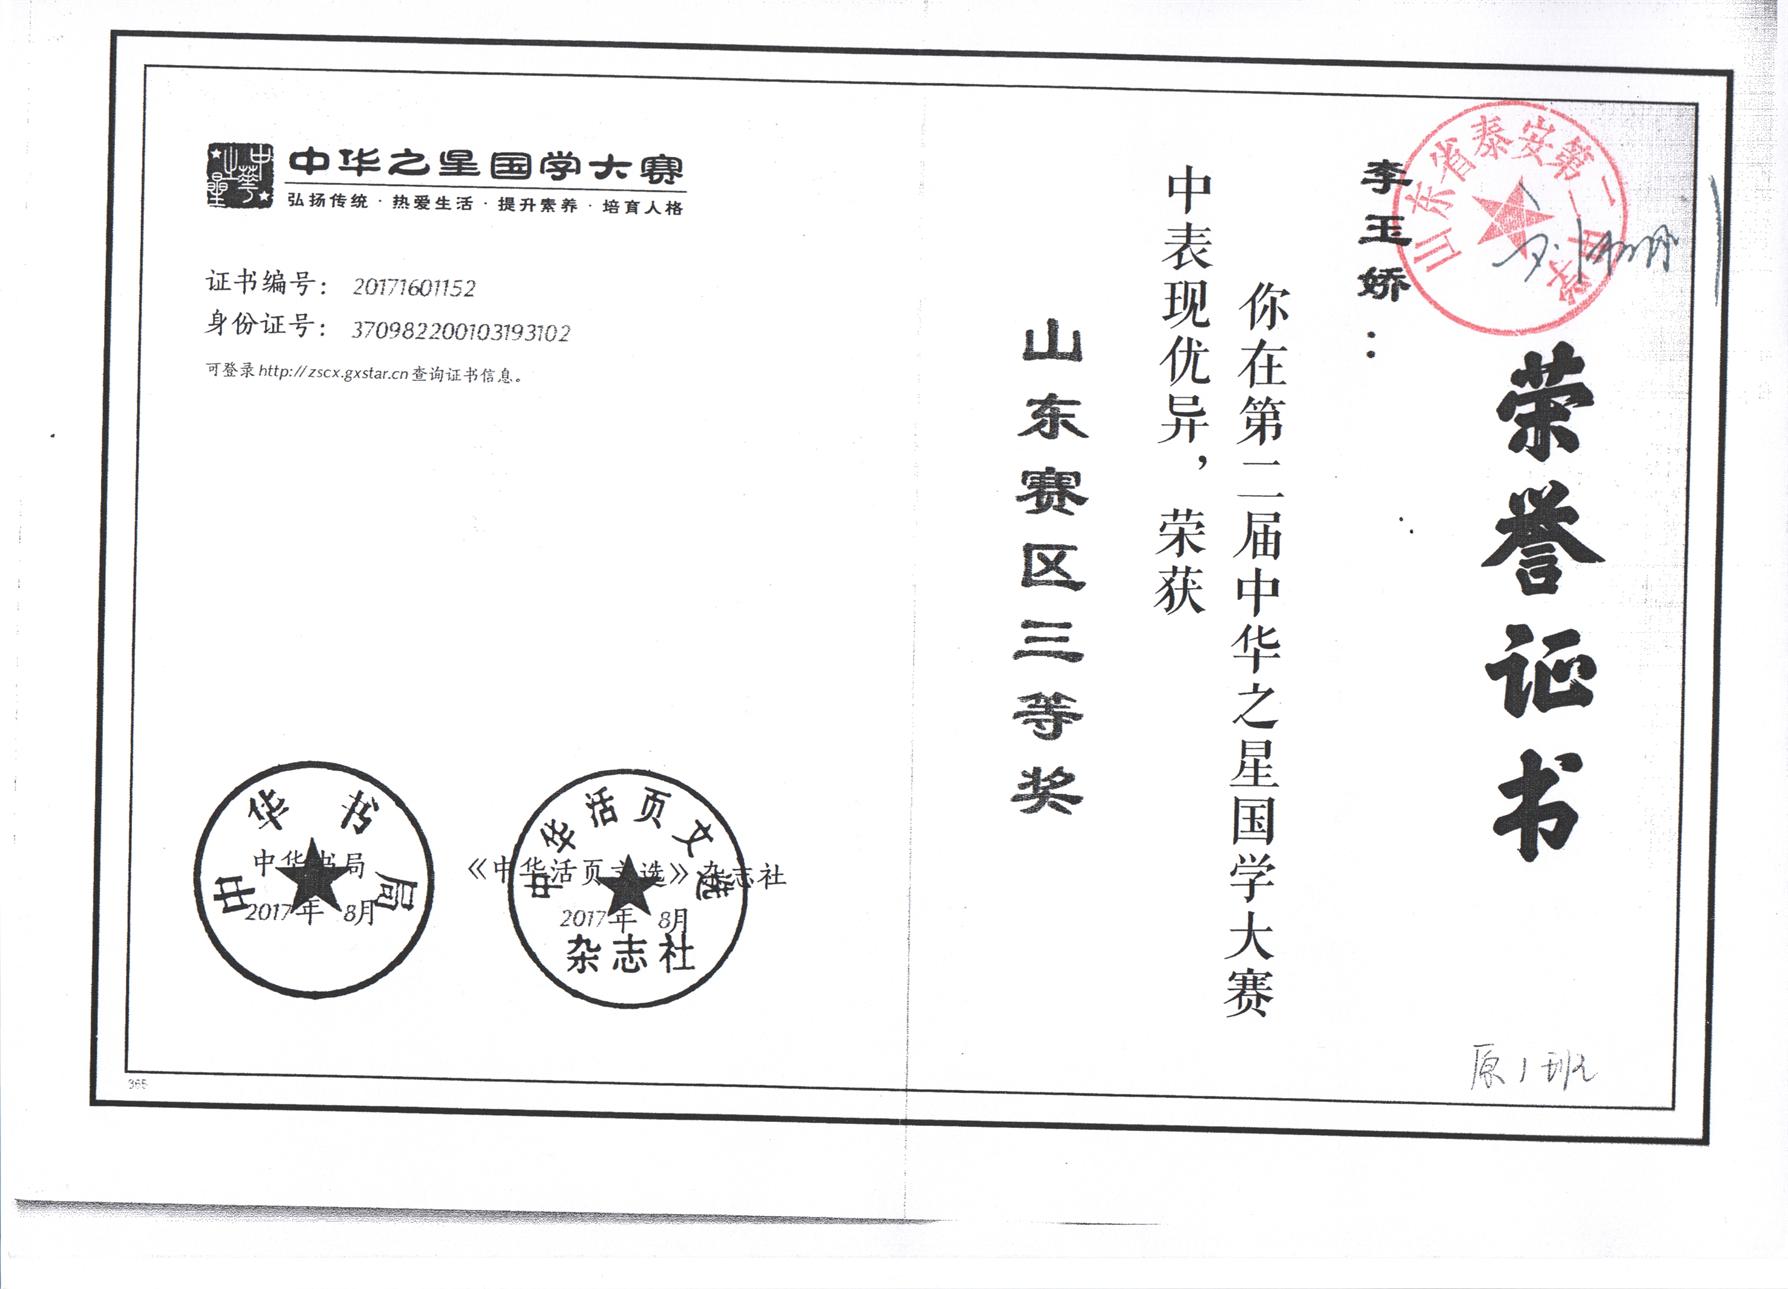 荣誉证书
李玉娇：
你在第二届中华之星国学大赛
中表现优异，荣获
山东赛区三等奖
中华之星
中华之星国学大赛
弘扬传统·热爱生活·提升素养·培育人格
证书编号： 20171601152
身份证号： 370982200103193102
可登录http://zscx.gxstar.cn查询证书信息。
中华书局
中华书局
2017年 8月
中华活页文选
《中华活页文选》杂志社
2017年 8月
杂志社
山东省泰安第二中学
原1班
365